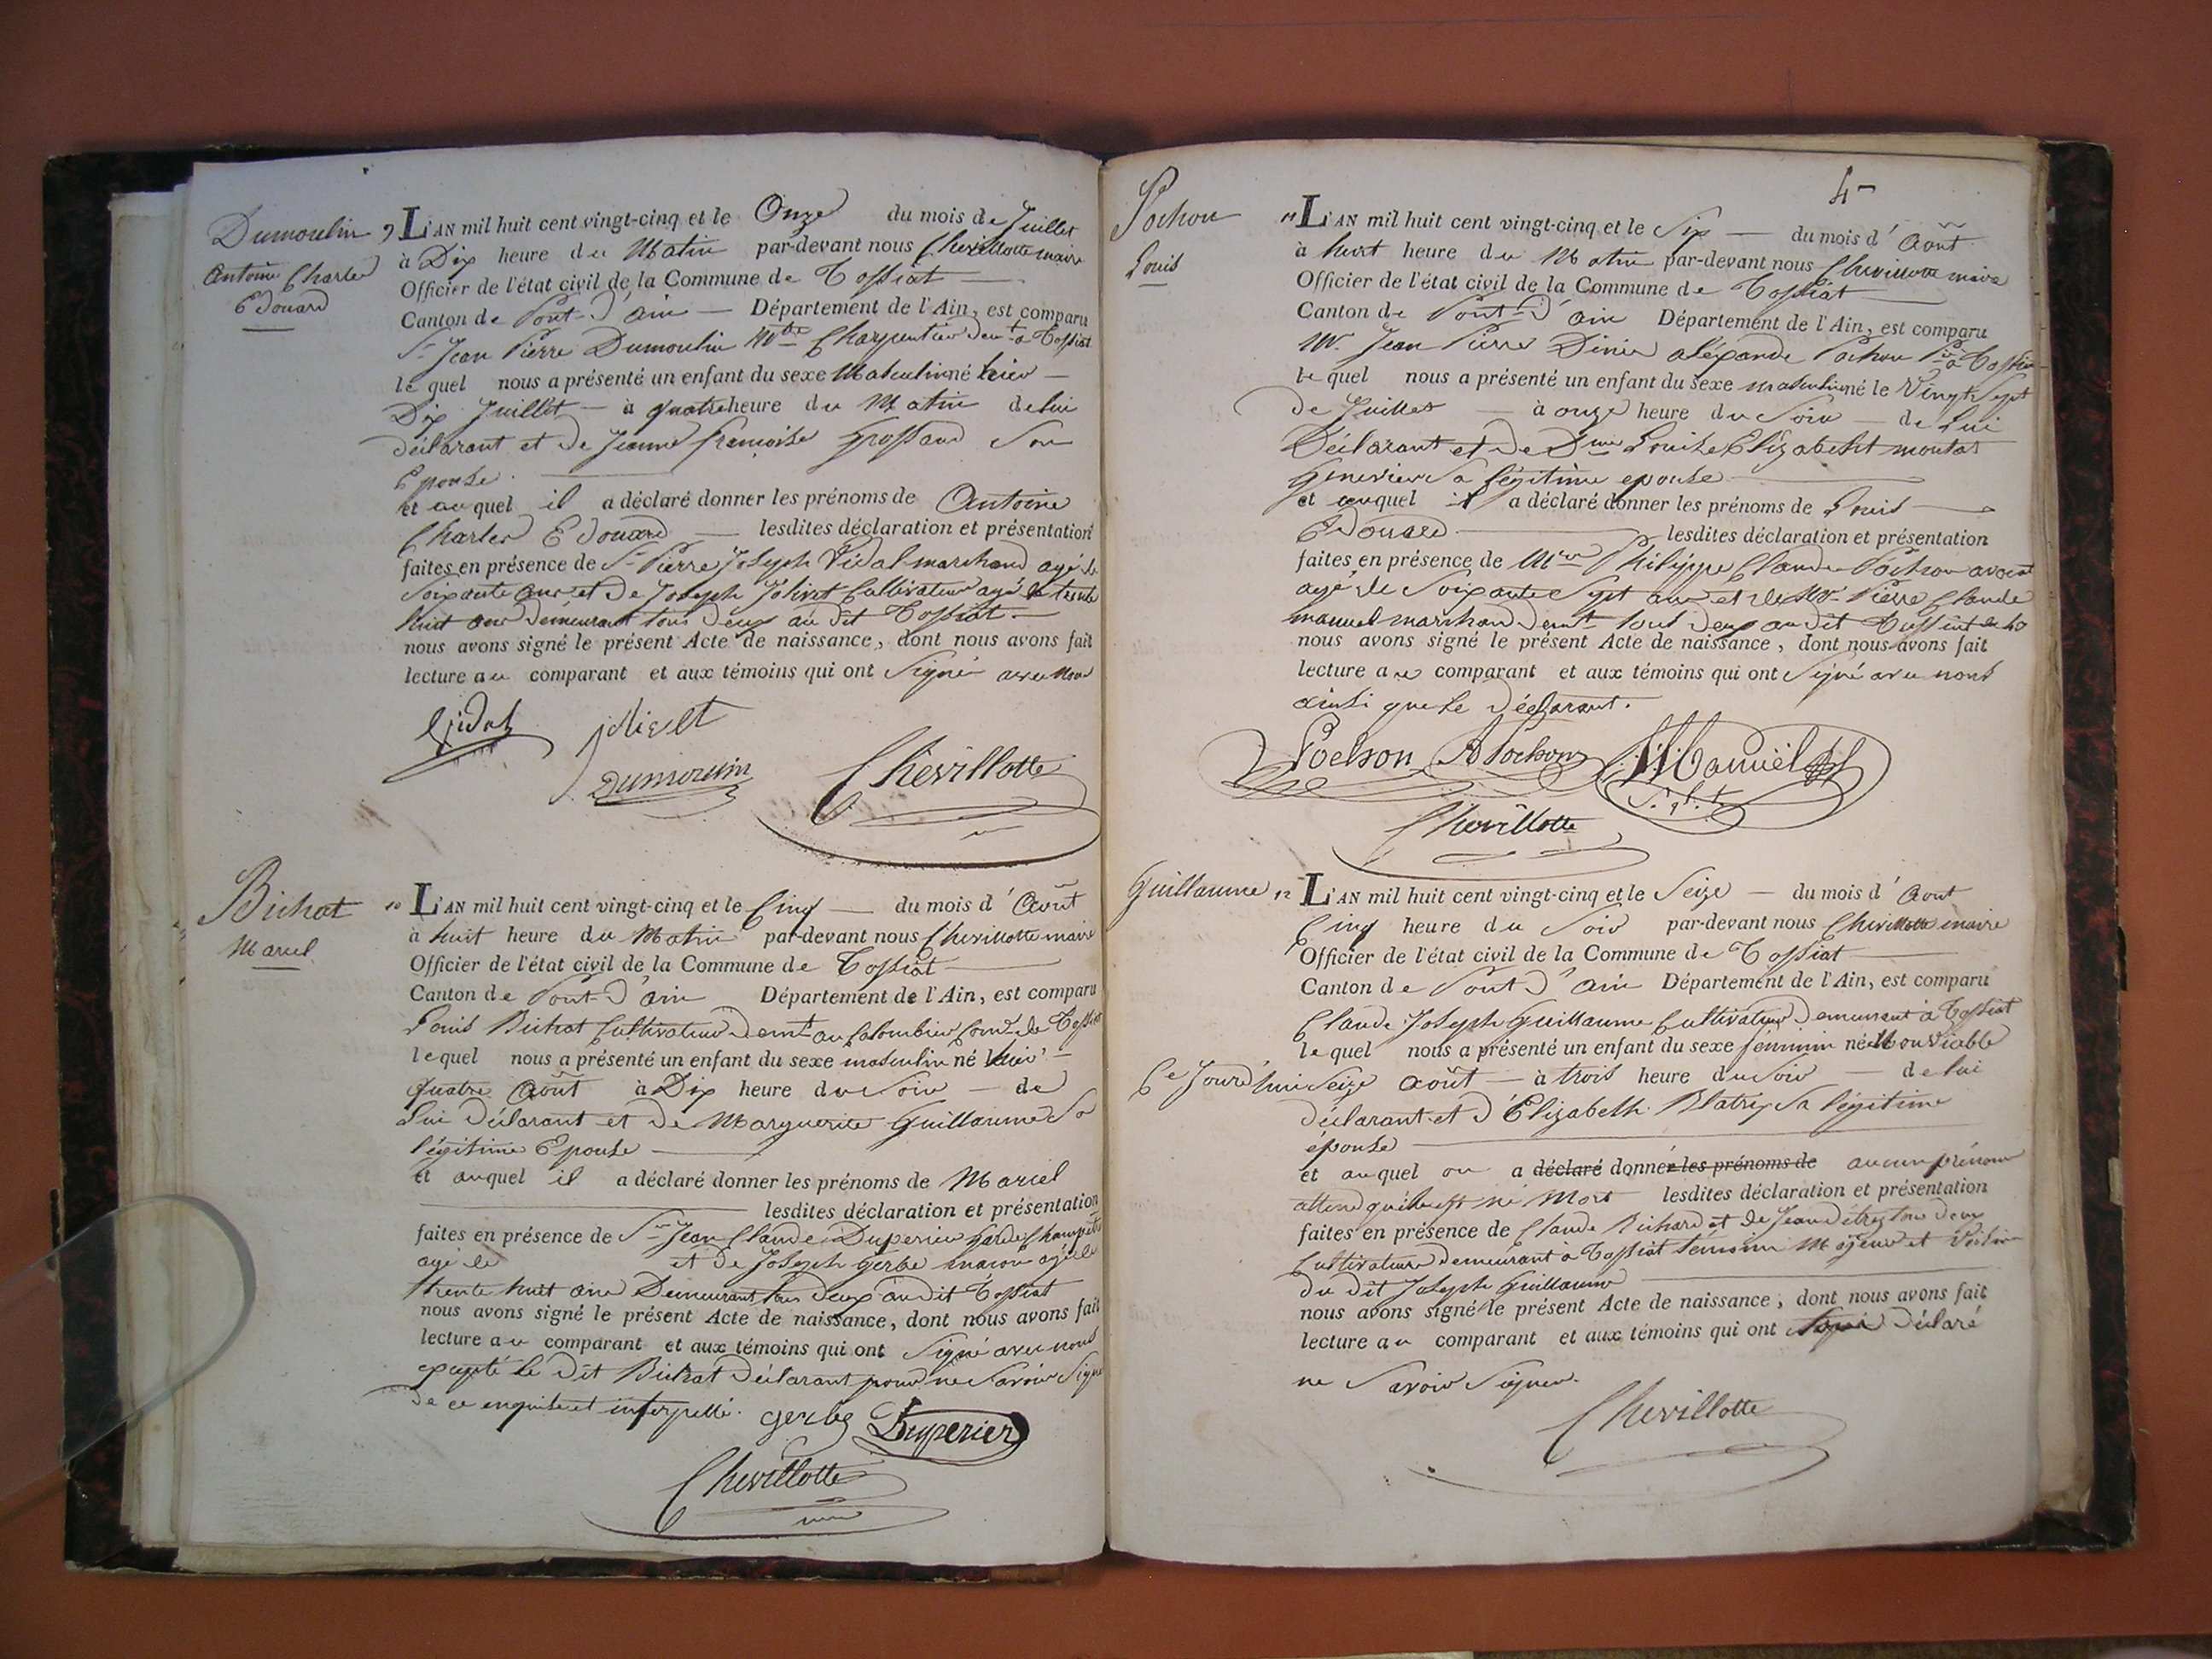 Dumoulin
Antoine Charles
Edouard
9 L'AN mil huit cent vingt-cinq et le Onze du mois de Juillet
à Dix heure du Matin par-devant nous Chevillotte maire
Officier de l'état civil de la Commune de Tossiat
Canton de Pont-D'ain Département de l'Ain, est comparu
Sr Jean Pierre Dumoulin Mtre Charpentier demt a Tossiat
le quel nous a présenté un enfant du sexe Masculin né hier
Dix Juillet à quatre heure du Matin de lui
déclarant et de Jeanne françoise Grossand Son
Epouse.
et au quel il a déclaré donner les prénoms de Antoine
Charles Edouard lesdites déclaration et présentation
faites en présence de Sr Pierre Joseph Vidal marchand agé de
Soixante ans et De Joseph Jolivet Cultivateur agé de trente
huit ans demeurant tous deux au dit Tossiat.
nous avons signé le présent Acte de naissance, dont nous avons fait
lecture au comparant et aux témoins qui ont Signé avec nous
Vidal Jolivet
Dumoulin Chevillotte
Bichat
Marcel
10 L'AN mil huit cent vingt-cinq et le Cinq du mois d'Août
à huit heure du Matin par-devant nous Chevillotte maire
Officier de l'état civil de la Commune de Tossiat
Canton de Pont-D'ain Département de l'Ain, est comparu
Louis Bichat Cultivateur demt au Colombier Comne de Tossiat
lequel nous a présenté un enfant du sexe masculin né hier
quatre Août à Dix heure du Soir de
Lui Déclarant et De Marguerite Guillaume Sa
légitime Epouse
et auquel il a déclaré donner les prénoms de Marcel
lesdites déclaration et présentation
faites en présence de Sr Jean Claude Duperier garde Champetre
agé de et De Joseph Gerbe maçon agé de
trente huit ans Demeurant tous deux au dit Tossiat
nous avons signé le présent Acte de naissance, dont nous avons fait
lecture au comparant et aux témoins qui ont Signé avec nous
excepté le Dit Bichat Déclarant pour ne Savoir Signer
De ce enquis et interpellé. gerbe Duperier
Chevillotte
4
Pochon
Louis
11 L'AN mil huit cent vingt-cinq et le Six du mois d'Août
à huit heure du Matin par-devant nous Chevillotte maire
Officier de l'état civil de la Commune de Tossiat
Canton de Pont-D'ain Département de l'Ain, est comparu
Mr. Jean Pierre Dinier aléxandre Pochon à Tossiat
le quel nous a présenté un enfant du sexe masculin né le Vingt Sept
De Juillet à onze heure du Soir de Lui
Déclarant et de Dme Louise Elizabeht montas
Geneviève Sa légitime epouse
et auquel il a déclaré donner les prénoms de Louis
Edouard lesdites déclaration et présentation
faites en présence de Philippe Claude Pochon avocat
agé de Soixante Sept ans et de Mr. Pierre Claude
manuel marchand demt tous deux au dit Tossiat
nous avons signé le présent Acte de naissance, dont nous avons fait
lecture au comparant et aux témoins qui ont Signé avec nous
ainsi que le Déclarant.
Pochon A Pochon Manuël
Chevillotte
Guillaume
12 L'AN mil huit cent vingt-cinq et le Seize du mois d'Aout
Cinq heure du Soir par-devant nous Chevillotte maire
Officier de l'état civil de la Commune de Tossiat
Canton de Pont D'ain Département de l'Ain, est comparu
Claude Joseph Guillaume Cultivateur Demeurant à Tossiat
le quel nous a présenté un enfant du sexe féminin né Non Viable
Ce Jourd'hui Seize Août à trois heure du Soir de lui
déclarant et d'Elizabeth Blatrix Sa légitime
épouse
et auquel on a déclaré donner les prénoms de aucun prénom
attendu qu'il est né Mort lesdites déclaration et présentation
faites en présence de Claude Bichard et de Jean détrez tous deux
Cultivateurs demeurant a Tossiat témoins Majeurs et Voisins
du dit Joseph Guillaume
nous avons signé le présent Acte de naissance, dont nous avons fait
lecture au comparant et aux témoins qui ont Signé Déclaré
ne Savoir Signer.
Chevillotte